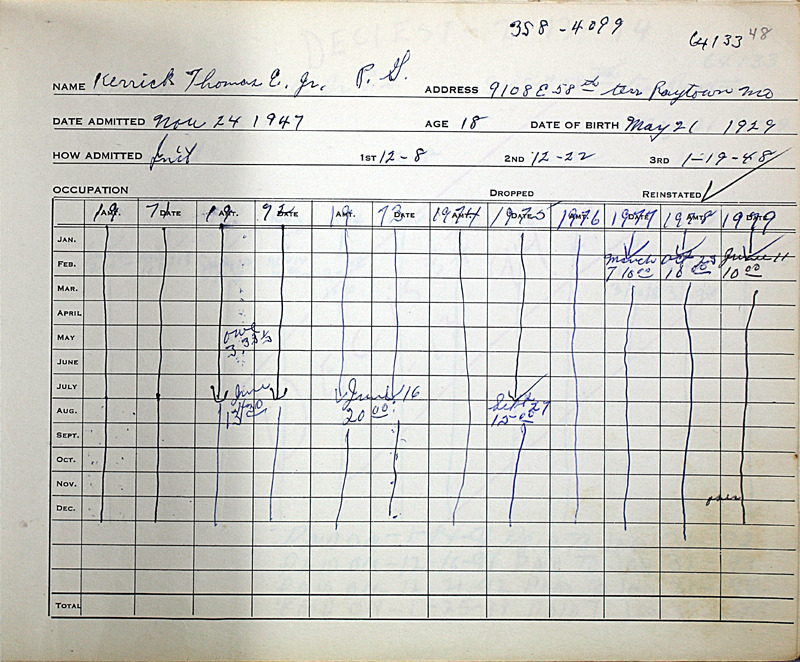 358-4099
C4133 48
NAME Kerrick Thomas E. Jr. P. G. ADDRESS 9108 E 58th terr Raytown Mo
DATE ADMITTED Nov 24 1947 AGE 18 DATE OF BIRTH May 21 1929
HOW ADMITTED Init 1ST 12-8 2ND 12-22 3RD 1-19-48
OCCUPATION DROPPED REINSTATED
AMT. DATE AMT. DATE AMT. DATE AMT. DATE AMT. DATE AMT. DATE
19 71 19 72 19 73 1974 1975 1976 1977 1978 1979
JAN.
FEB. March Oct 23 June 11
7 10 00 10 00 10 00
MAR.
APRIL
MAY owe
3.33 1/3
JUNE
JULY June June 16
AUG. 20 00 Sept 27
15 00
SEPT.
OCT.
NOV.
DEC.
TOTAL